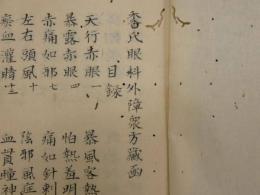 秘氏眼科外障衆方藏畵
目录
天行赤眼一
暴風客熱
暴露赤眼四
怕熱羞明
赤痛如邪七
痛如針刺
左右頭風十
陰邪風症
瘀血灌睛十三
血貫瞳神